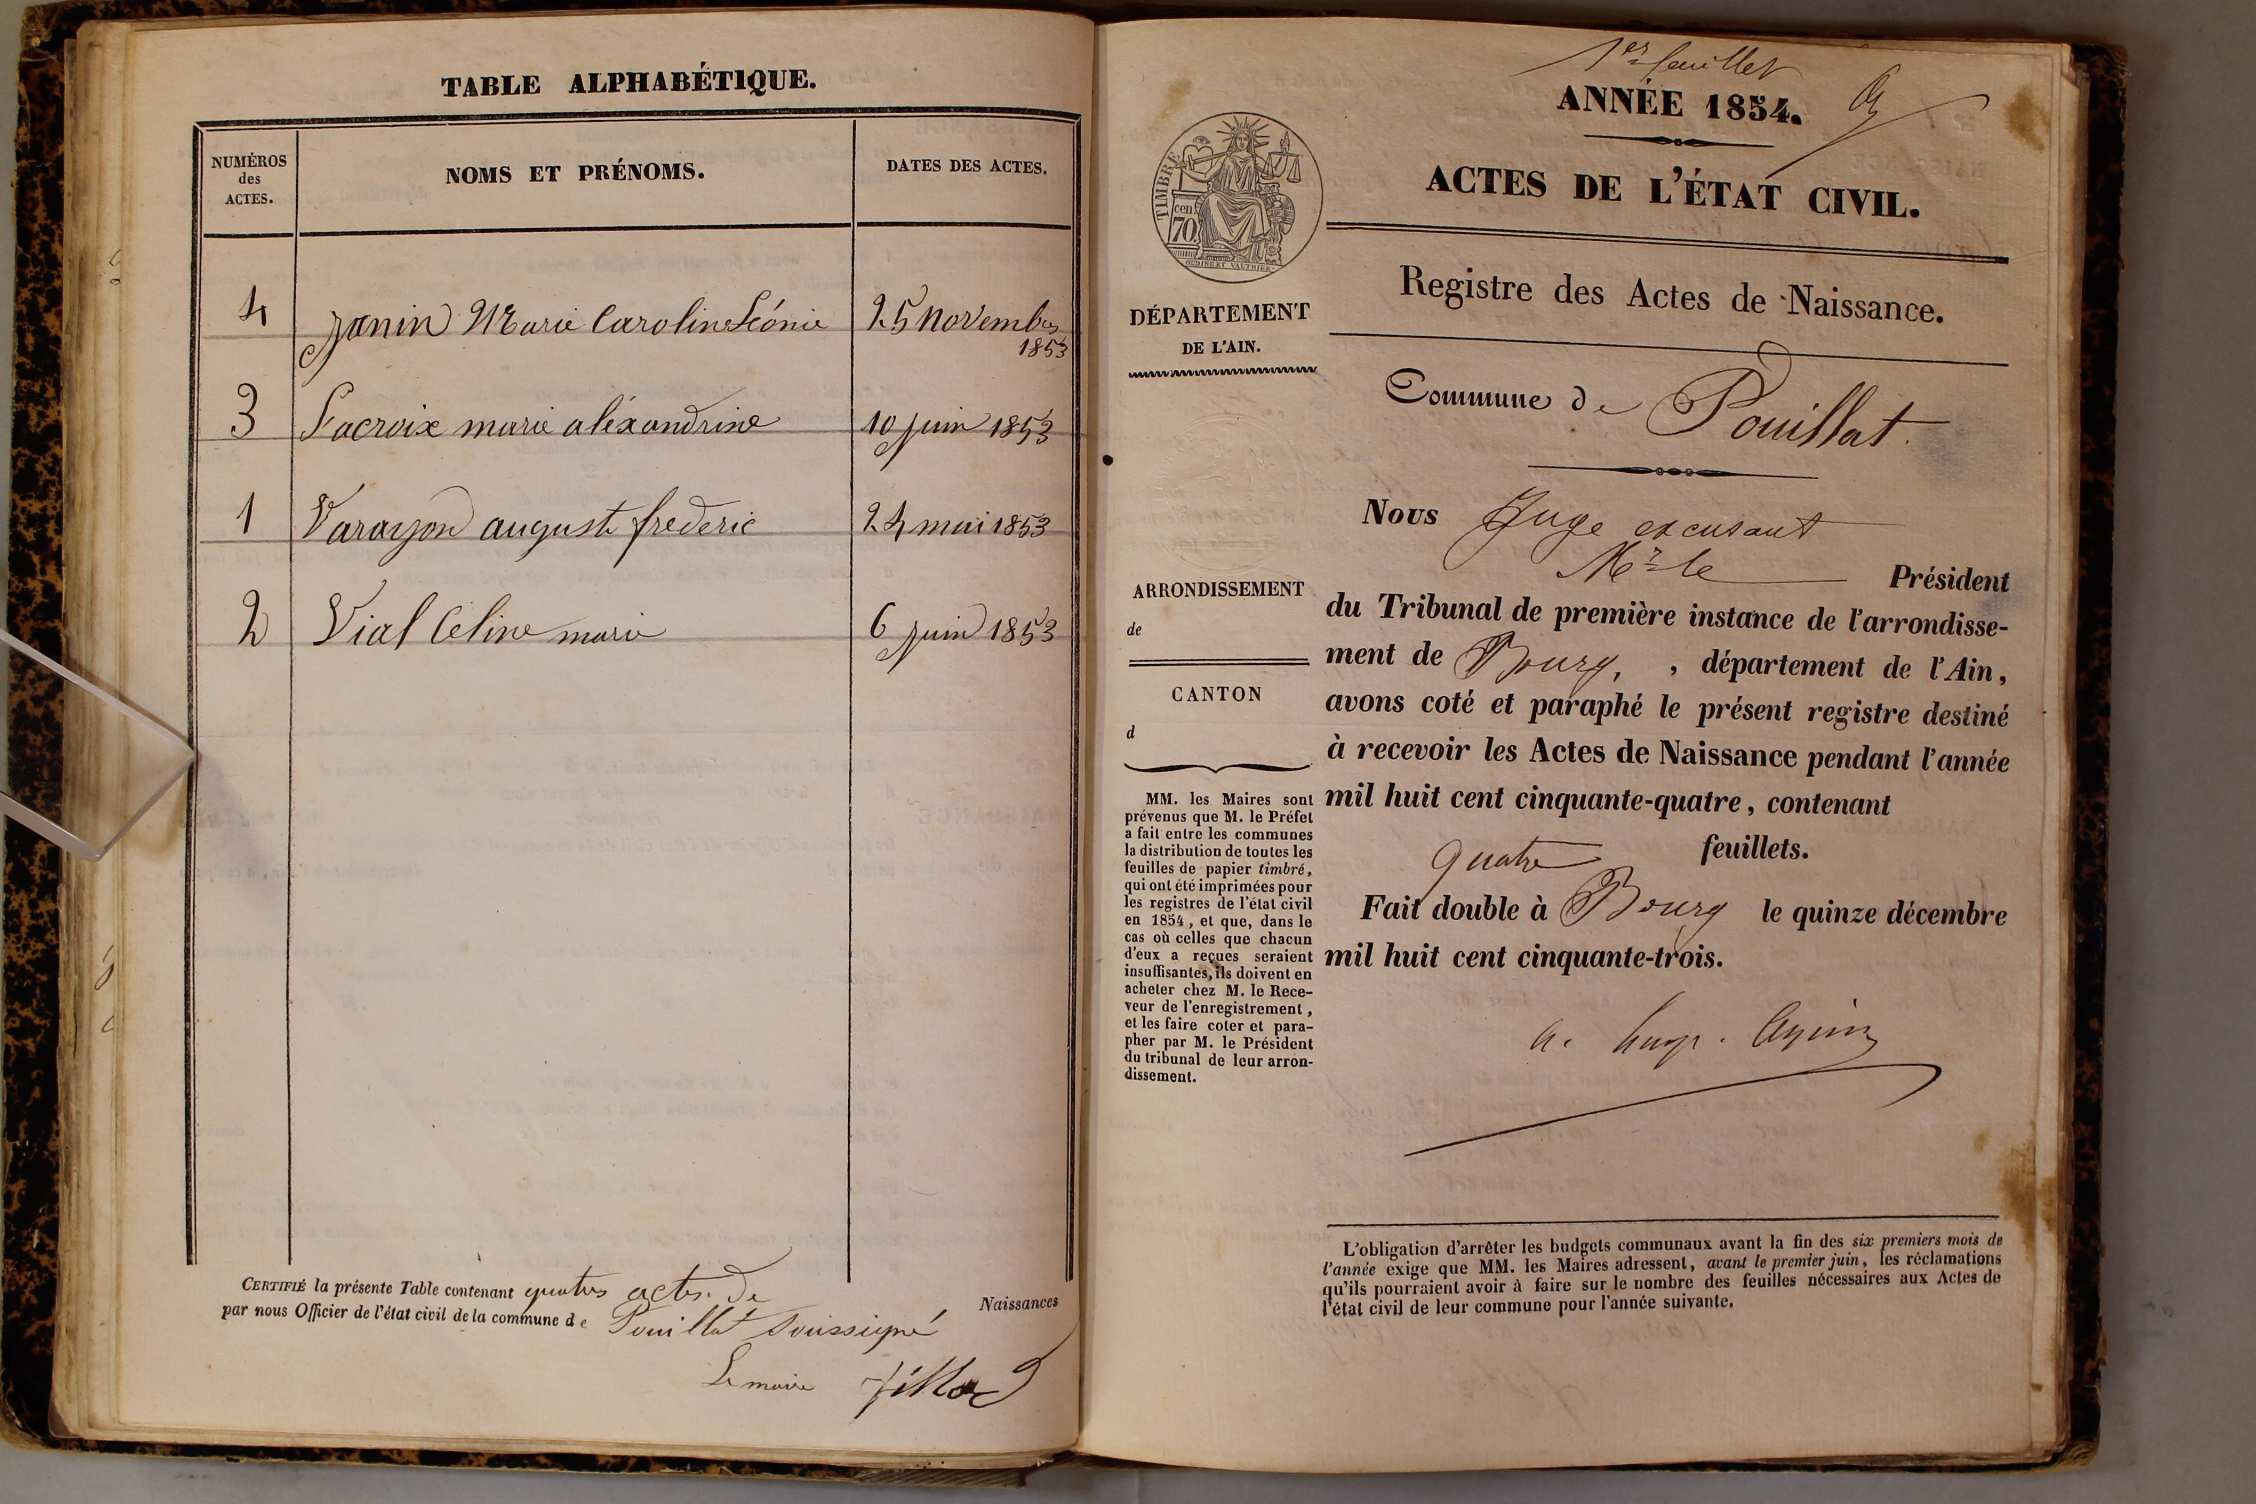 TABLE ALPHABÉTIQUE.
NUMÉROS
des
ACTES.
NOMS ET PRÉNOMS.
DATES DES ACTES.
4 Janin Marie Caroline Léonie 25 novembre
1853
3 Lacroix marie aléxandrine 10 juin 1853
1 Varayon auguste frederic 24 mai 1853
2 Vial Celine marie 6 juin 1853
CERTIFIÉ la présente Table contenant quatres actes de Naissances
par nous Officier de l'état civil de la commune de Pouillat soussigné
Le maire
1er feuillet
ANNÉE 1854.
ACTES DE L'ÉTAT CIVIL.
Registre des Actes de Naissance.
TIMBRE
70 cen
OUDINÉ ET VAUTHIER
DÉPARTEMENT
DE L'AIN.
Commune de Pouillat.
Nous Juge excusant
Mr le Président
du Tribunal de première instance de l'arrondisse-
ment de Bourg, , département de l'Ain,
avons coté et paraphé le présent registre destiné
à recevoir les Actes de Naissance pendant l'année
mil huit cent cinquante-quatre, contenant
quatre feuillets.
Fait double à Bourg le quinze décembre
mil huit cent cinquante-trois.
ARRONDISSEMENT
de
CANTON
d
MM. les Maires sont
prévenus que M. le Préfet
a fait entre les communes
la distribution de toutes les
feuilles de papier timbré,
qui ont été imprimées pour
les registres de l'état civil
en 1854, et que, dans le
cas où celles que chacun
d'eux a reçues seraient
insuffisantes, ils doivent en
acheter chez M. le Rece-
veur de l'enregistrement,
et les faire coter et para-
pher par M. le Président
du tribunal de leur arron-
dissement.
L'obligation d'arrêter les budgets communaux avant la fin des six premiers mois de
l'année exige que MM. les Maires adressent, avant le premier juin, les réclamations
qu'ils pourraient avoir à faire sur le nombre des feuilles nécessaires aux Actes de
l'état civil de leur commune pour l'année suivante.